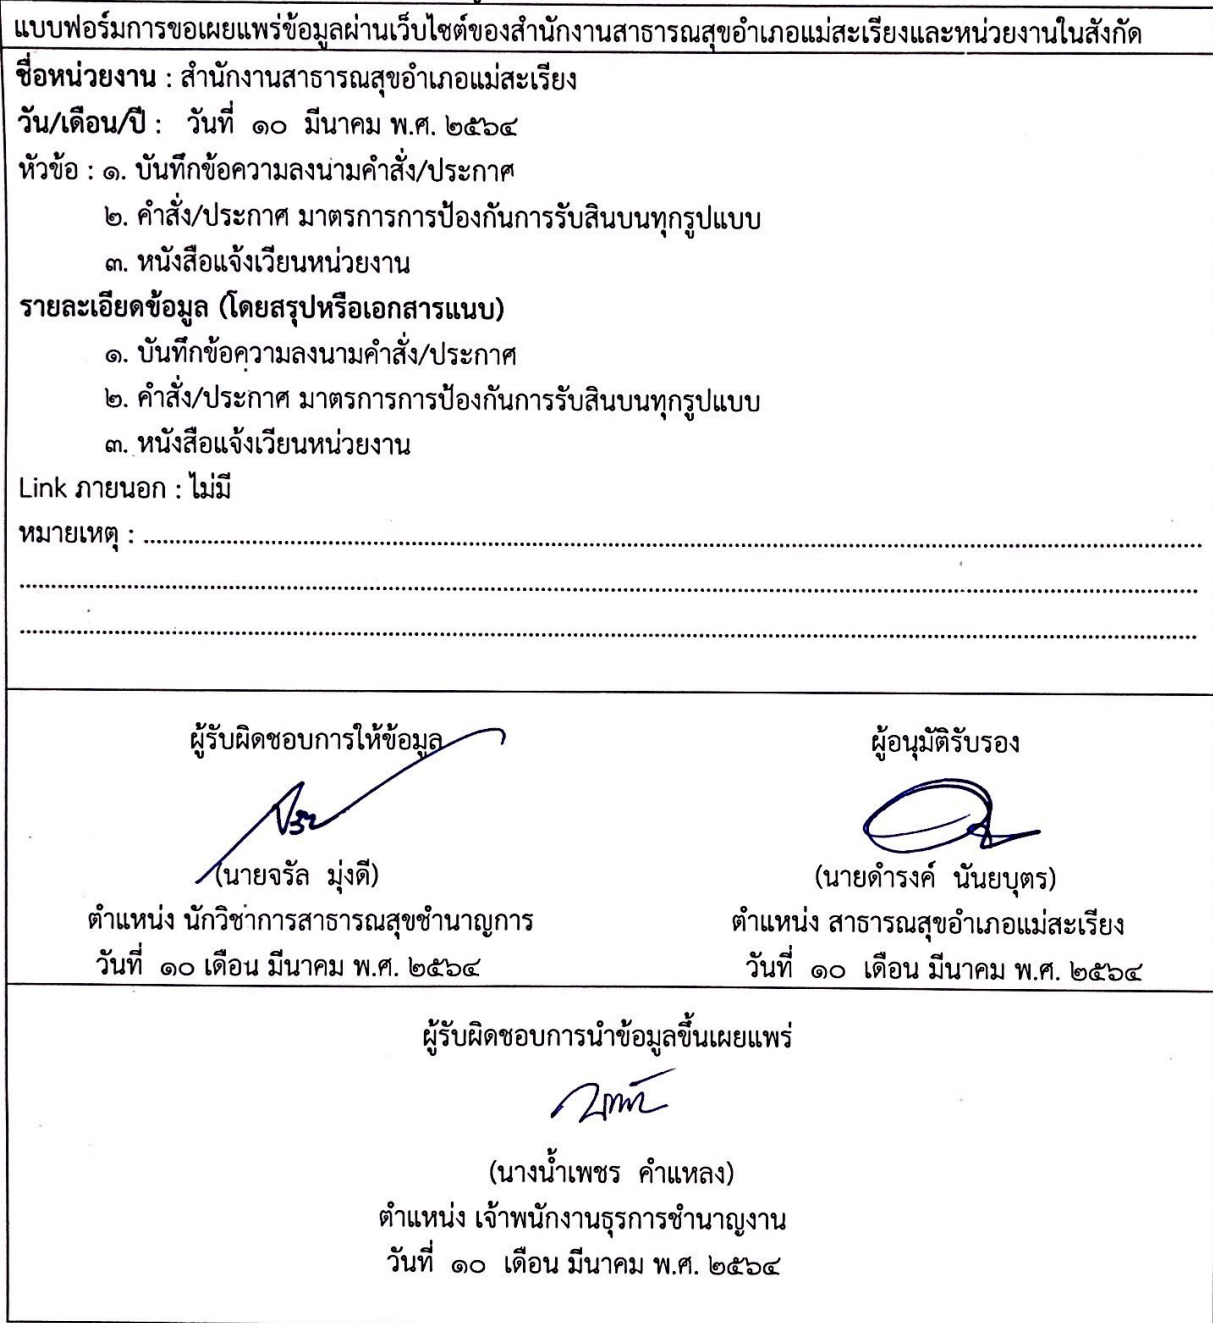 แบบฟอร์มการขอเผยแพร่ข้อมูลผ่านเว็บไซต์ของสำนักงานสาธารณสุขอำเภอแม่สะเรียงและหน่วยงานในสังกัด
ชื่อหน่วยงาน : สำนักงานสาธารณสุขอำเภอแม่สะเรียง
วัน/เดือน/ปี : วันที่ ๑๐ มีนาคม พ.ศ. ๒๕๖๔
หัวข้อ : ๑. บันทึกข้อความลงนามคำสั่ง/ประกาศ
๒. คำสั่ง/ประกาศ มาตรการการป้องกันการรับสินบนทุกรูปแบบ
๓. หนังสือแจ้งเวียนหน่วยงาน
รายละเอียดข้อมูล (โดยสรุปหรือเอกสารแนบ)
๑. บันทึกข้อความลงนามคำสั่ง/ประกาศ
๒. คำสั่ง/ประกาศ มาตรการการป้องกันการรับสินบนทุกรูปแบบ
๓. หนังสือแจ้งเวียนหน่วยงาน
Link ภายนอก : ไม่มี
หมายเหตุ : ........................................................................
........................................................................
........................................................................
ผู้รับผิดชอบการให้ข้อมูล
(นายจรัล มุ่งดี)
ตำแหน่ง นักวิชาการสาธารณสุขชำนาญการ
วันที่ ๑๐ เดือน มีนาคม พ.ศ. ๒๕๖๔
ผู้อนุมัติรับรอง
(นายดำรงค์ นันยบุตร)
ตำแหน่ง สาธารณสุขอำเภอแม่สะเรียง
วันที่ ๑๐ เดือน มีนาคม พ.ศ. ๒๕๖๔
ผู้รับผิดชอบการนำข้อมูลขึ้นเผยแพร่
(นางน้ำเพชร คำแหลง)
ตำแหน่ง เจ้าพนักงานธุรการชำนาญงาน
วันที่ ๑๐ เดือน มีนาคม พ.ศ. ๒๕๖๔